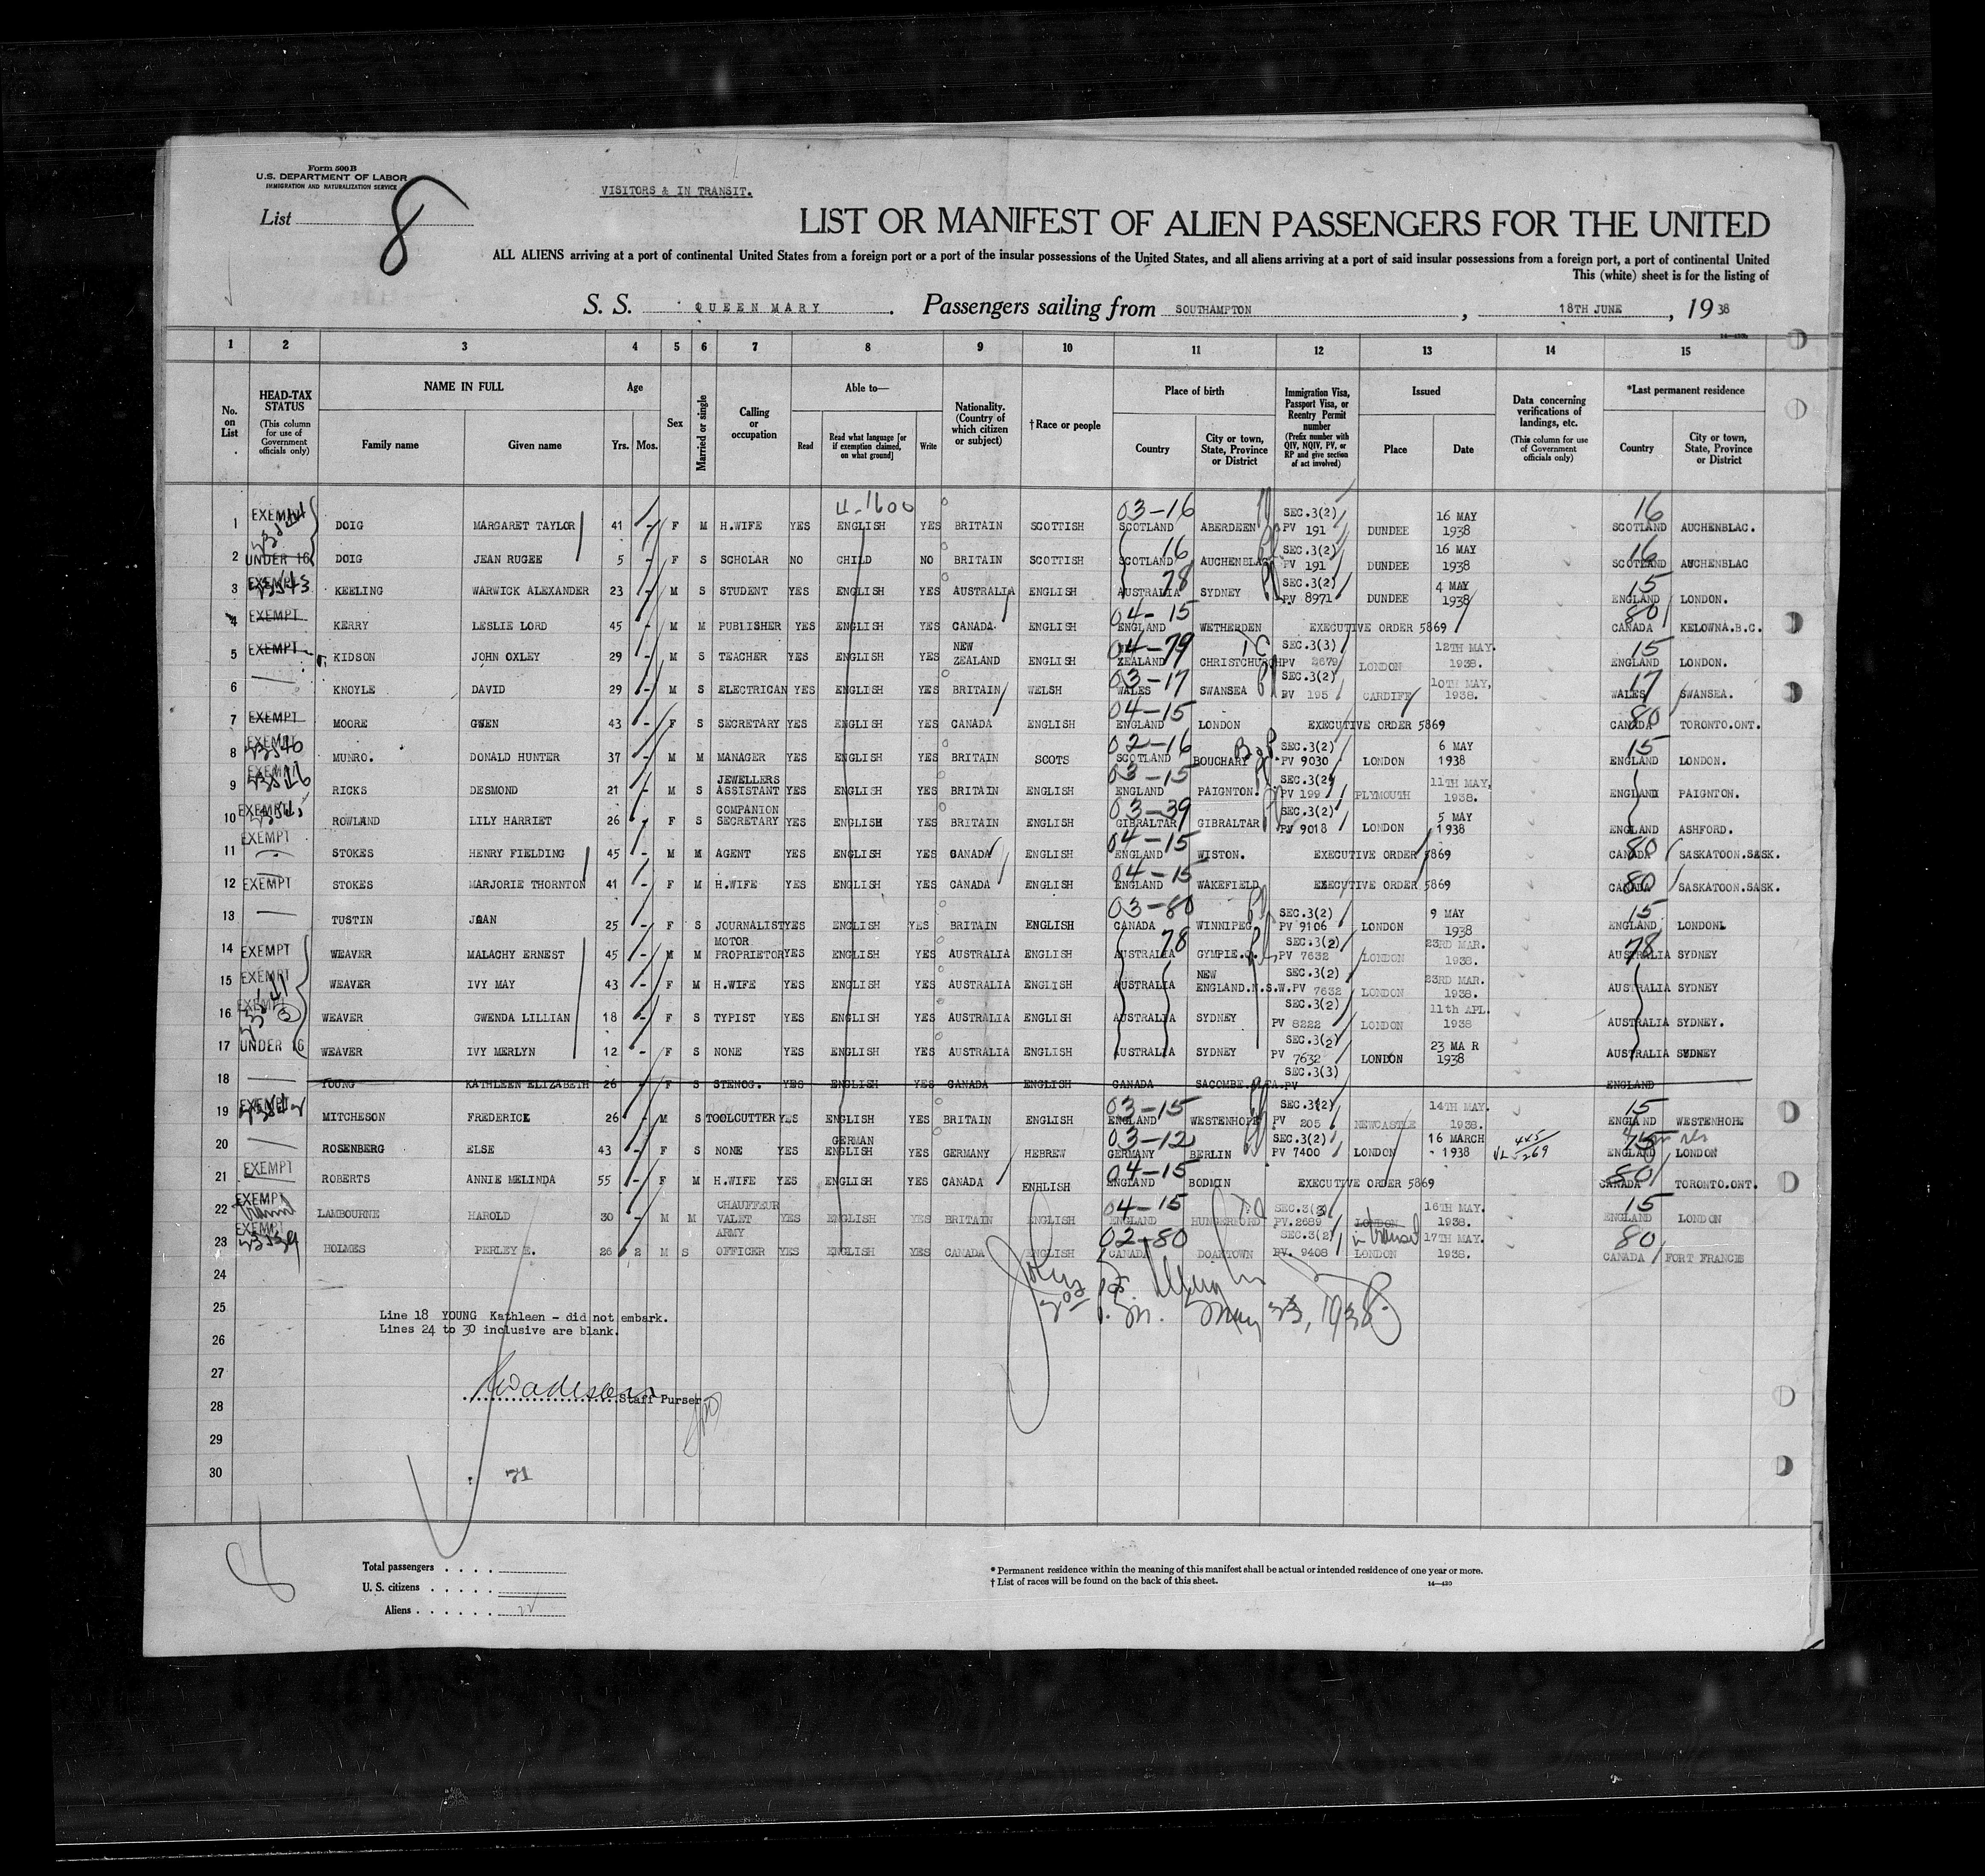 Form 500 B
U.S. DEPARTMENT OF LABOR
IMMIGRATION AND NATURALIZATION SERVICE
VISITORS & IN TRANSIT.
List 8
LIST OR MANIFEST OF ALIEN PASSENGERS FOR THE UNITED
ALL ALIENS arriving at a port of continental United States from a foreign port or a port of the insular possessions of the United States, and all aliens arriving at a port of said insular possessions from a foreign port, a port of continental United
This (white) sheet is for the listing of
S. S. QUEEN MARY. Passengers sailing from SOUTHAMPTON, 18TH JUNE, 1938
14-430
1 2 3 4 5 6 7 8 9 10 11 12 13 14 15
No. on List
HEAD-TAX STATUS (This column for use of Government officials only)
NAME IN FULL
Family name Given name
Age
Yrs. Mos.
Sex
Married or single
Calling or occupation
Able to—
Read Read what language [or if exemption claimed, on what ground] Write
Nationality. (Country of which citizen or subject)
†Race or people
Place of birth
Country City or town, State, Province or District
Immigration Visa, Passport Visa, or Reentry Permit number (Prefix number with QIV, NQIV, PV, or RP and give section of act involved)
Issued
Place Date
Data concerning verifications of landings, etc. (This column for use of Government officials only)
*Last permanent residence
Country City or town, State, Province or District
4-1600
1 EXEMPT DOIG MARGARET TAYLOR 41 - F M H.WIFE YES ENGLISH YES BRITAIN SCOTTISH 03-16 SCOTLAND ABERDEEN SEC.3(2) PV 191 DUNDEE 16 MAY 1938 16 SCOTLAND AUCHENBLAC.
2 UNDER 16 DOIG JEAN RUGEE 5 - F S SCHOLAR NO CHILD NO BRITAIN SCOTTISH 16 SCOTLAND AUCHENBLAC SEC.3(2) PV 191 DUNDEE 16 MAY 1938 16 SCOTLAND AUCHENBLAC
3 EXEMPT KEELING WARWICK ALEXANDER 23 - M S STUDENT YES ENGLISH YES AUSTRALIA ENGLISH 78 AUSTRALIA SYDNEY SEC.3(2) PV 8971 DUNDEE 4 MAY 1938 15 ENGLAND LONDON.
4 EXEMPT KERRY LESLIE LORD 45 - M M PUBLISHER YES ENGLISH YES CANADA. ENGLISH 04-15 ENGLAND WETHERDEN EXECUTIVE ORDER 5869 80 CANADA KELOWNA.B.C.
5 EXEMPT KIDSON JOHN OXLEY 29 - M S TEACHER YES ENGLISH YES NEW ZEALAND ENGLISH 04-79 ZEALAND CHRISTCHURCH TC SEC.3(3) PV 2679 LONDON 12TH MAY. 1938. 15 ENGLAND LONDON.
6 KNOYLE DAVID 29 - M S ELECTRICAN YES ENGLISH YES BRITAIN WELSH 03-17 WALES SWANSEA SEC.3(2) PV 195 CARDIFF 10TH MAY, 1938. 17 WALES SWANSEA.
7 EXEMPT MOORE GWEN 43 - F S SECRETARY YES ENGLISH YES CANADA ENGLISH 04-15 ENGLAND LONDON EXECUTIVE ORDER 5869 80 CANADA TORONTO.ONT.
8 EXEMPT MUNRO. DONALD HUNTER 37 - M M MANAGER YES ENGLISH YES BRITAIN SCOTS 02-16 SCOTLAND BOUCHARY SEC.3(2) PV 9030 LONDON 6 MAY 1938 15 ENGLAND LONDON.
9 EXEMPT RICKS DESMOND 21 - M S JEWELLERS ASSISTANT YES ENGLISH YES BRITAIN ENGLISH 03-15 ENGLAND PAIGNTON. SEC.3(2) PV 199 PLYMOUTH 11TH MAY, 1938. ENGLAND PAIGNTON.
10 EXEMPT ROWLAND LILY HARRIET 26 - F S COMPANION SECRETARY YES ENGLISH YES BRITAIN ENGLISH 03-39 GIBRALTAR GIBRALTAR SEC.3(2) PV 9018 LONDON 5 MAY 1938 ENGLAND ASHFORD.
11 EXEMPT STOKES HENRY FIELDING 45 - M M AGENT YES ENGLISH YES CANADA ENGLISH 04-15 ENGLAND WISTON. EXECUTIVE ORDER 5869 80 CANADA SASKATOON.SASK.
12 EXEMPT STOKES MARJORIE THORNTON 41 - F M H.WIFE YES ENGLISH YES CANADA ENGLISH 04-15 ENGLAND WAKEFIELD EXECUTIVE ORDER 5869 80 CANADA SASKATOON.SASK.
13 TUSTIN JOAN 25 - F S JOURNALIST YES ENGLISH YES BRITAIN ENGLISH 03-80 CANADA WINNIPEG SEC.3(2) PV 9106 LONDON 9 MAY 1938 15 ENGLAND LONDON
14 EXEMPT WEAVER MALACHY ERNEST 45 - M M MOTOR PROPRIETOR YES ENGLISH YES AUSTRALIA ENGLISH 78 AUSTRALIA GYMPIE.Q. SEC.3(2) PV 7632 LONDON 23RD MAR. 1938. 78 AUSTRALIA SYDNEY
15 EXEMPT WEAVER IVY MAY 43 - F M H.WIFE YES ENGLISH YES AUSTRALIA ENGLISH AUSTRALIA NEW ENGLAND.N.S.W. SEC.3(2) PV 7632 LONDON 23RD MAR. 1938. AUSTRALIA SYDNEY
16 EXEMPT WEAVER GWENDA LILLIAN 18 - F S TYPIST YES ENGLISH YES AUSTRALIA ENGLISH AUSTRALIA SYDNEY SEC.3(2) PV 8222 LONDON 11th APL. 1938 AUSTRALIA SYDNEY.
17 UNDER 16 WEAVER IVY MERLYN 12 - F S NONE YES ENGLISH YES AUSTRALIA ENGLISH AUSTRALIA SYDNEY SEC.3(2) PV 7632 LONDON 23 MA R 1938 AUSTRALIA SYDNEY
18 YOUNG KATHLEEN ELIZABETH 26 - F S STENOG. YES ENGLISH YES CANADA ENGLISH CANADA SACOMBE. SEC.3(3) PV ENGLAND
19 EXEMPT MITCHESON FREDERICK 26 - M S TOOLCUTTER YES ENGLISH YES BRITAIN ENGLISH 03-15 ENGLAND WESTENHOPE SEC.3(2) PV 205 NEWCASTLE 14TH MAY. 1938. 15 ENGLAND WESTENHOPE
20 ROSENBERG ELSE 43 - F S NONE YES GERMAN ENGLISH YES GERMANY HEBREW 03-12 GERMANY BERLIN SEC.3(2) PV 7400 LONDON 16 MARCH 1938 ENGLAND LONDON
21 EXEMPT ROBERTS ANNIE MELINDA 55 - F M H.WIFE YES ENGLISH YES CANADA ENHLISH 04-15 ENGLAND BODMIN EXECUTIVE ORDER 5869 80 CANADA TORONTO.ONT.
22 EXEMPT LAMBOURNE HAROLD 30 - M M CHAUFFEUR VALET YES ENGLISH YES BRITAIN ENGLISH 04-15 ENGLAND HUNGERFORD SEC.3(3) PV.2689 LONDON in transit 16TH MAY. 1938. 15 ENGLAND LONDON
23 EXEMPT HOLMES PERLEY E. 26 2 M S ARMY OFFICER YES ENGLISH YES CANADA ENGLISH 02-80 CANADA DOAKTOWN SEC.3(2) PV. 9408 LONDON 17TH MAY. 1938. 80 CANADA FORT FRANCES
24
25
Line 18 YOUNG Kathleen - did not embark.
Lines 24 to 30 inclusive are blank.
May 23, 1938
26
27
Staff Purser
28
29
30
71
Total passengers
U. S. citizens
Aliens 22
* Permanent residence within the meaning of this manifest shall be actual or intended residence of one year or more.
† List of races will be found on the back of this sheet.
14-430